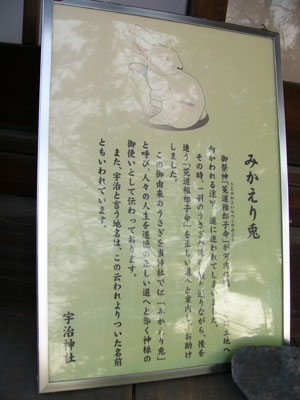 みかえり兎
御祭神「菟道稚郎子命」が河内
向かわれる途中、道に迷われてしまいました。
その時、一羽のうさぎが振り返り振り返りながら、後を
追う「菟道稚郎子命」を正しい道へと案内し、お助け
しました。
この御由来のうさぎを当神社では「みかえり兎」
と呼び、人々の人生を道徳の正しい道へと導く神様の
御使いとして伝わっております。
また、宇治と言う地名は、この云われよりついた名前
ともいわれています。
宇治神社